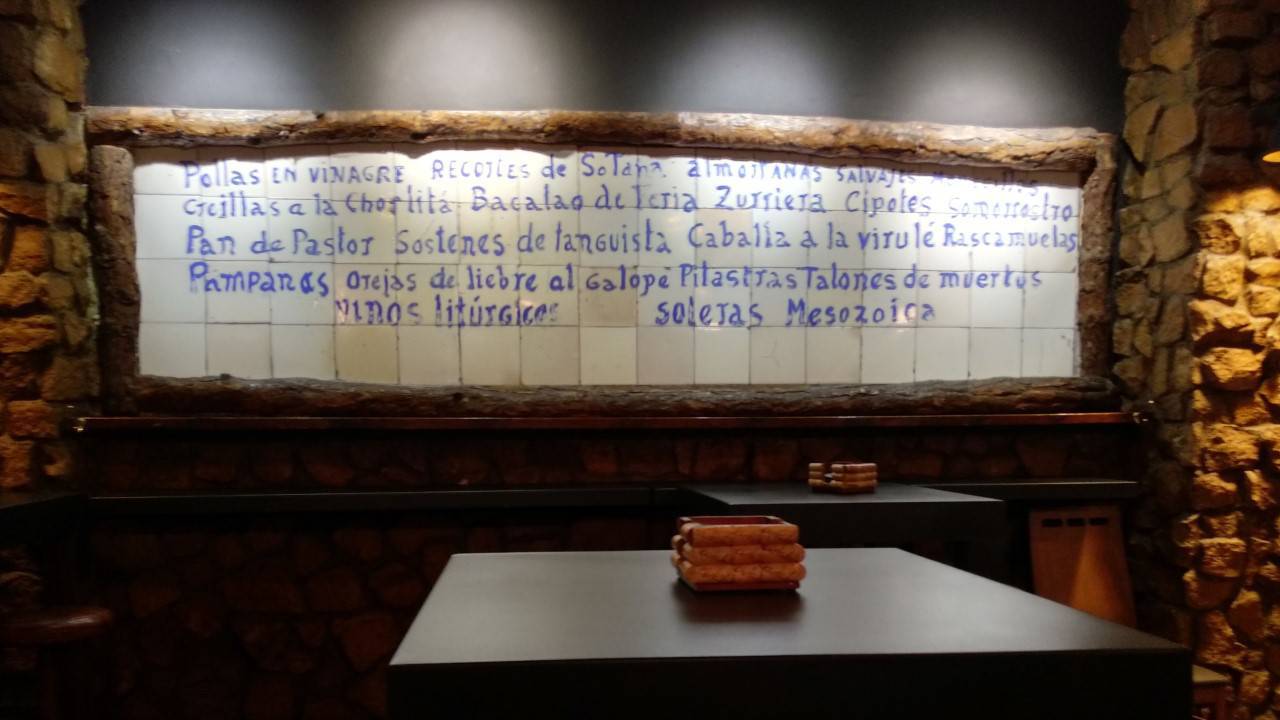 Pollas EN VINAGRE RECORTES de Sotana. almorranas SALVAJES
a la Chorlitá Bacalao de Feria Zurriera Cipotes Somorrostro
Pan de Pastor Sostenes de tanguista Caballa a la virulé Rascamuelas
Pámpanos orejas de liebre al Galope Pilastras Talones de muertos
vinos litúrgicos soleras Mesozoica